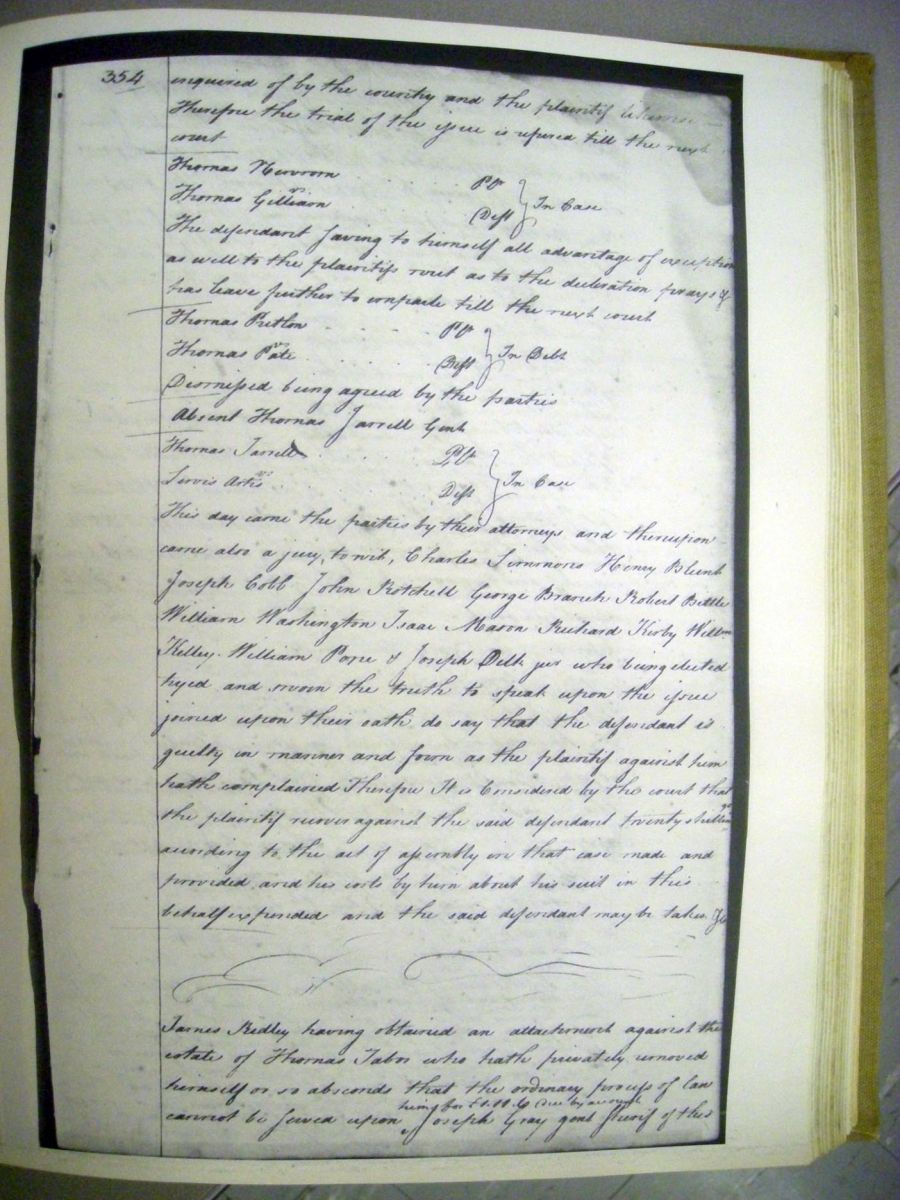 354
enquired of by the country and the plaintif likewise
Therefore the trial of the issue is refered till the next
court
Thomas Newsom . . . Plt
Thomas Gilliam vs . . . Deft } In Case
The defendant saving to himself all advantage of exception
as well to the plaintifs writ as to the declaration prays &
has leave further to imparle till the next court
Thomas Pretlow . . . . Plt
Thomas Pate vs . . . . Deft } In Debt
Dismissed being agreed by the parties
Absent Thomas Jarrell Gent
Thomas Jarrell . . . . Plt
Lewis Artis vs . . . . Deft } In Case
This day came the parties by their attorneys and thereupon
came also a jury, to wit, Charles Simmons Henry Blunt
Joseph Cobb John Rotchell George Branch Robert Bittle
William Washington Isaac Mason Richard Kirby Willm
Kelley William Pope & Joseph Delk jur who being elected
tryed and sworn the truth to speak upon the issue
joined upon their oath do say that the defendant is
guilty in manner and form as the plaintif against him
hath complained Therefore It is Considered by the court that
the plaintif recover against the said defendant twenty shillings
according to the act of assembly in that case made and
provided and his costs by him about his suit in this
behalf expended and the said defendant may be taken &c
James Ridley having obtained an attachment against the
estate of Thomas Tabor who hath privately removed
himself or so absconds that the ordinary process of law
cannot be served upon him for due by account Joseph Gray gent sherif of this